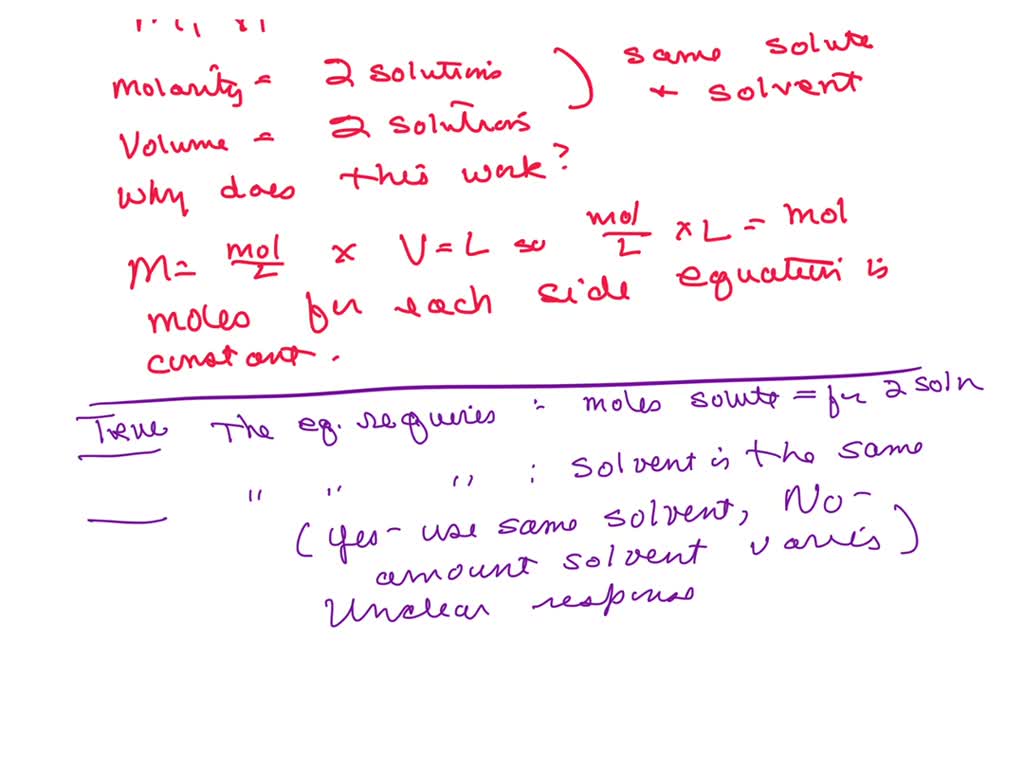 Molarity = 2 solutions ) same solute
+ solvent
Volume = 2 solutions
Why does this work?
M = mol/L x V = L so mol/L x L = mol
moles for each side equation is
constant.
True The eq. requries : moles solute = for 2 soln
" " " : solvent is the same
(Yes - use same solvent, No -
amount solvent varies)
Unclear response